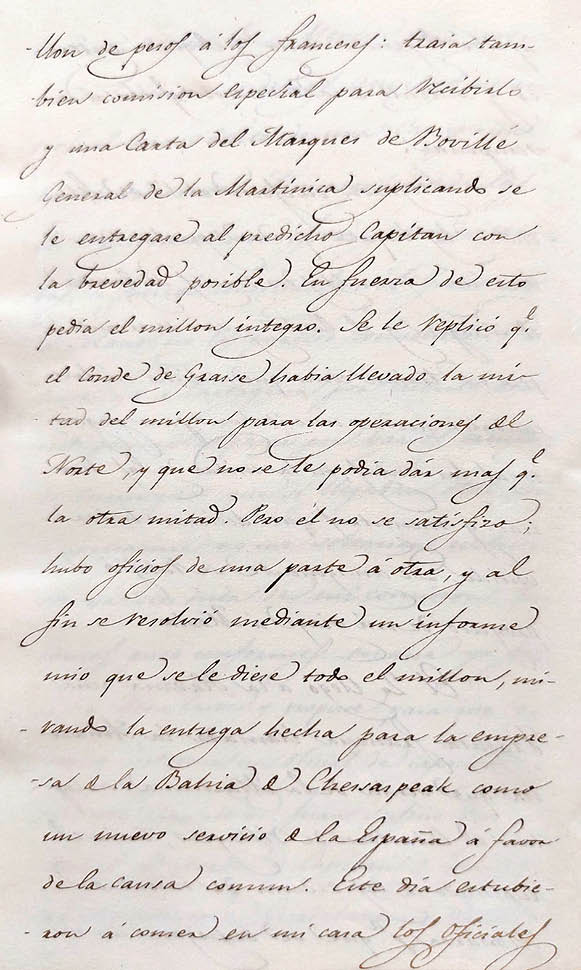 llon de pesos á los franceses: traia tam-
bien comision especial para recibirlo
y una Carta del Marques de Bovillé
General de la Martinica suplicando se
le entregase al predicho Capitan con
la brevedad posible. En fuerza de esto
pedia el millon integro. Se le replicó q.e
el Conde de Grasse habia llevado la mi-
tad del millon para las operaciones del
Norte, y que no se le podia dár mas q.e
la otra mitad. Pero el no se satisfizo;
hubo oficios de una parte á otra, y al
fin se resolvió mediante un informe
mio que se le diese todo el millon, mi-
rando la entrega hecha para la empre-
sa de la Bahia de Chessaspeak como
un nuevo servicio de la España á favor
de la causa comun. Este dia estubie-
ron á comer en mi casa los oficiales